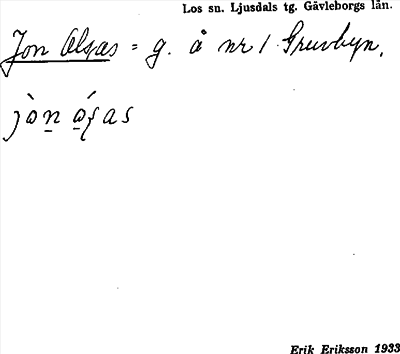 Los sn. Ljusdals tg. Gävleborgs län.
Jon Olsas = g. å nr 1 Gruvbyn.
jòn
Erik Eriksson 1933